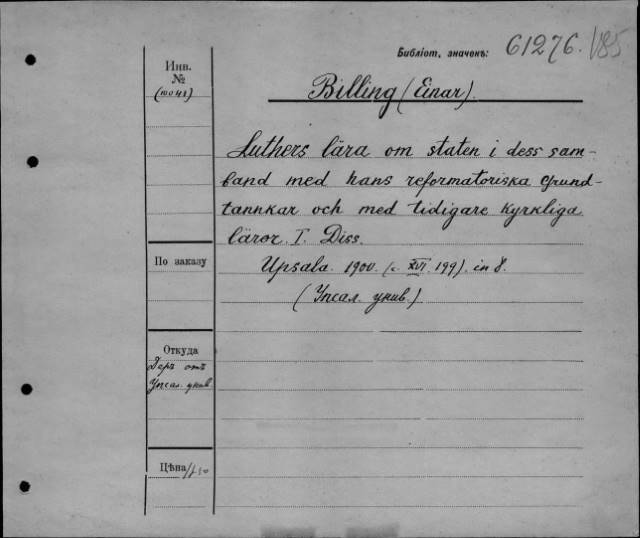 Библіот. значекъ: 61276. /185
Инв.
№
(10048)
Billing (Einar).
Luthers lära om staten i dess sam-
band med hans reformatoriska grund-
tannkar och med tidigare kyrkliga
läror. I. Diss.
По заказу
Upsala. 1900. (с. XVI. 199). in 8.
(Упсал. унив.)
Откуда
Даръ отъ
Упсал. унив.
Цѣна